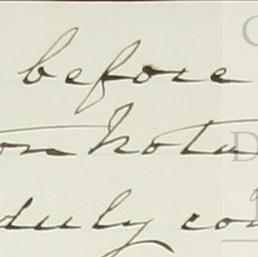 before
on Nota
duly co